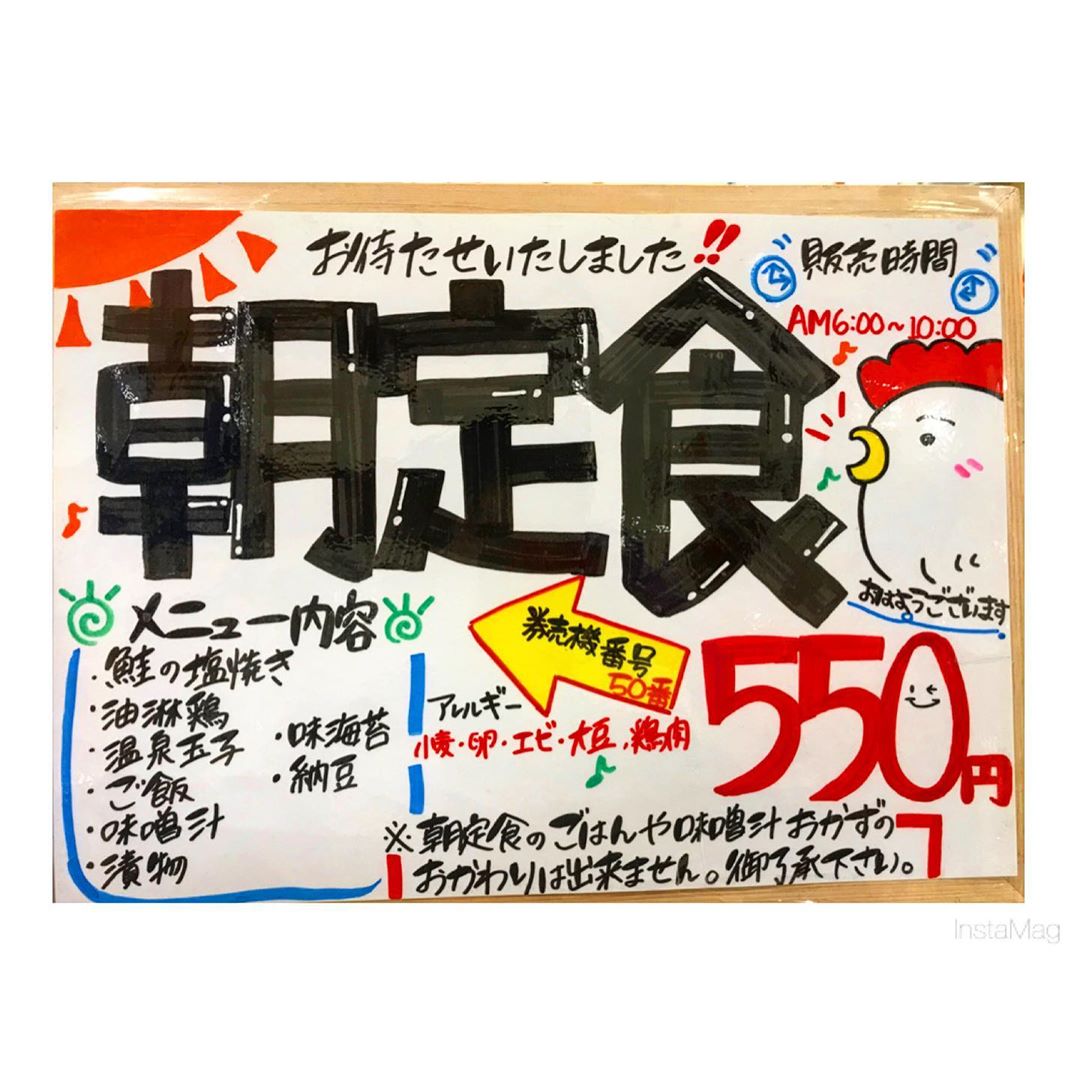 お待たせいたしました!!
販売時間
AM6:00~10:00
朝定食
おはようございます
メニュー内容
・鮭の塩焼き
・油淋鶏
・温泉玉子
・ご飯
・味噌汁
・漬物
・味海苔
・納豆
券売機番号
50番
アレルギー
小麦・卵・エビ・大豆、鶏肉
550円
※朝定食のごはんや味噌汁おかずの
おかわりは出来ません。御了承下さい。
InstaMag